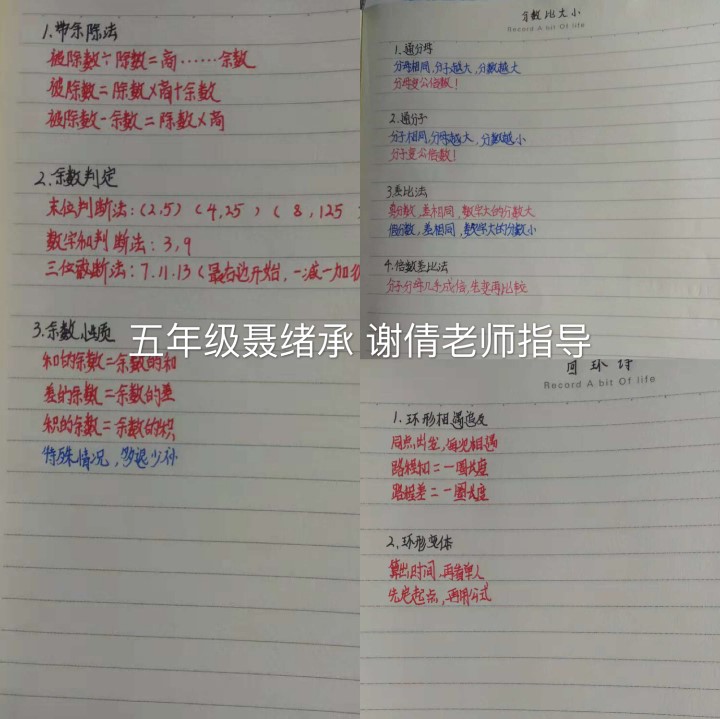 1.带余除法
被除数÷除数=商……余数
被除数=除数×商+余数
被除数-余数=除数×商
2.余数判定
末位判断法:(2,5)(4,25)(8,125
数字和判断法:3,9
三位截断法:7.11.13(最右边开始,一减一加
3.余数性质
和的余数=余数的和
差的余数=余数的差
积的余数=余数的积
特殊情况,多退少补
五年级聂绪承 谢倩老师指导
分数比大小
Record A bit Of life
1.通分母
分母相同,分子越大,分数越大
分母变公倍数!
2.通分子
分子相同,分母越大,分数越小
分子变公倍数!
3.差比法
真分数,差相同,数字大的分数大
假分数,差相同,数字大的分数小
4.倍数差比法
分子分母几乎成倍,先变再比较
Record A bit Of life
1.环形相遇追及
同点出发,每次相遇
路程和=一圈长度
路程差=一圈长度
2.环形变体
算出时间,再看单人
先定起点,再用公式